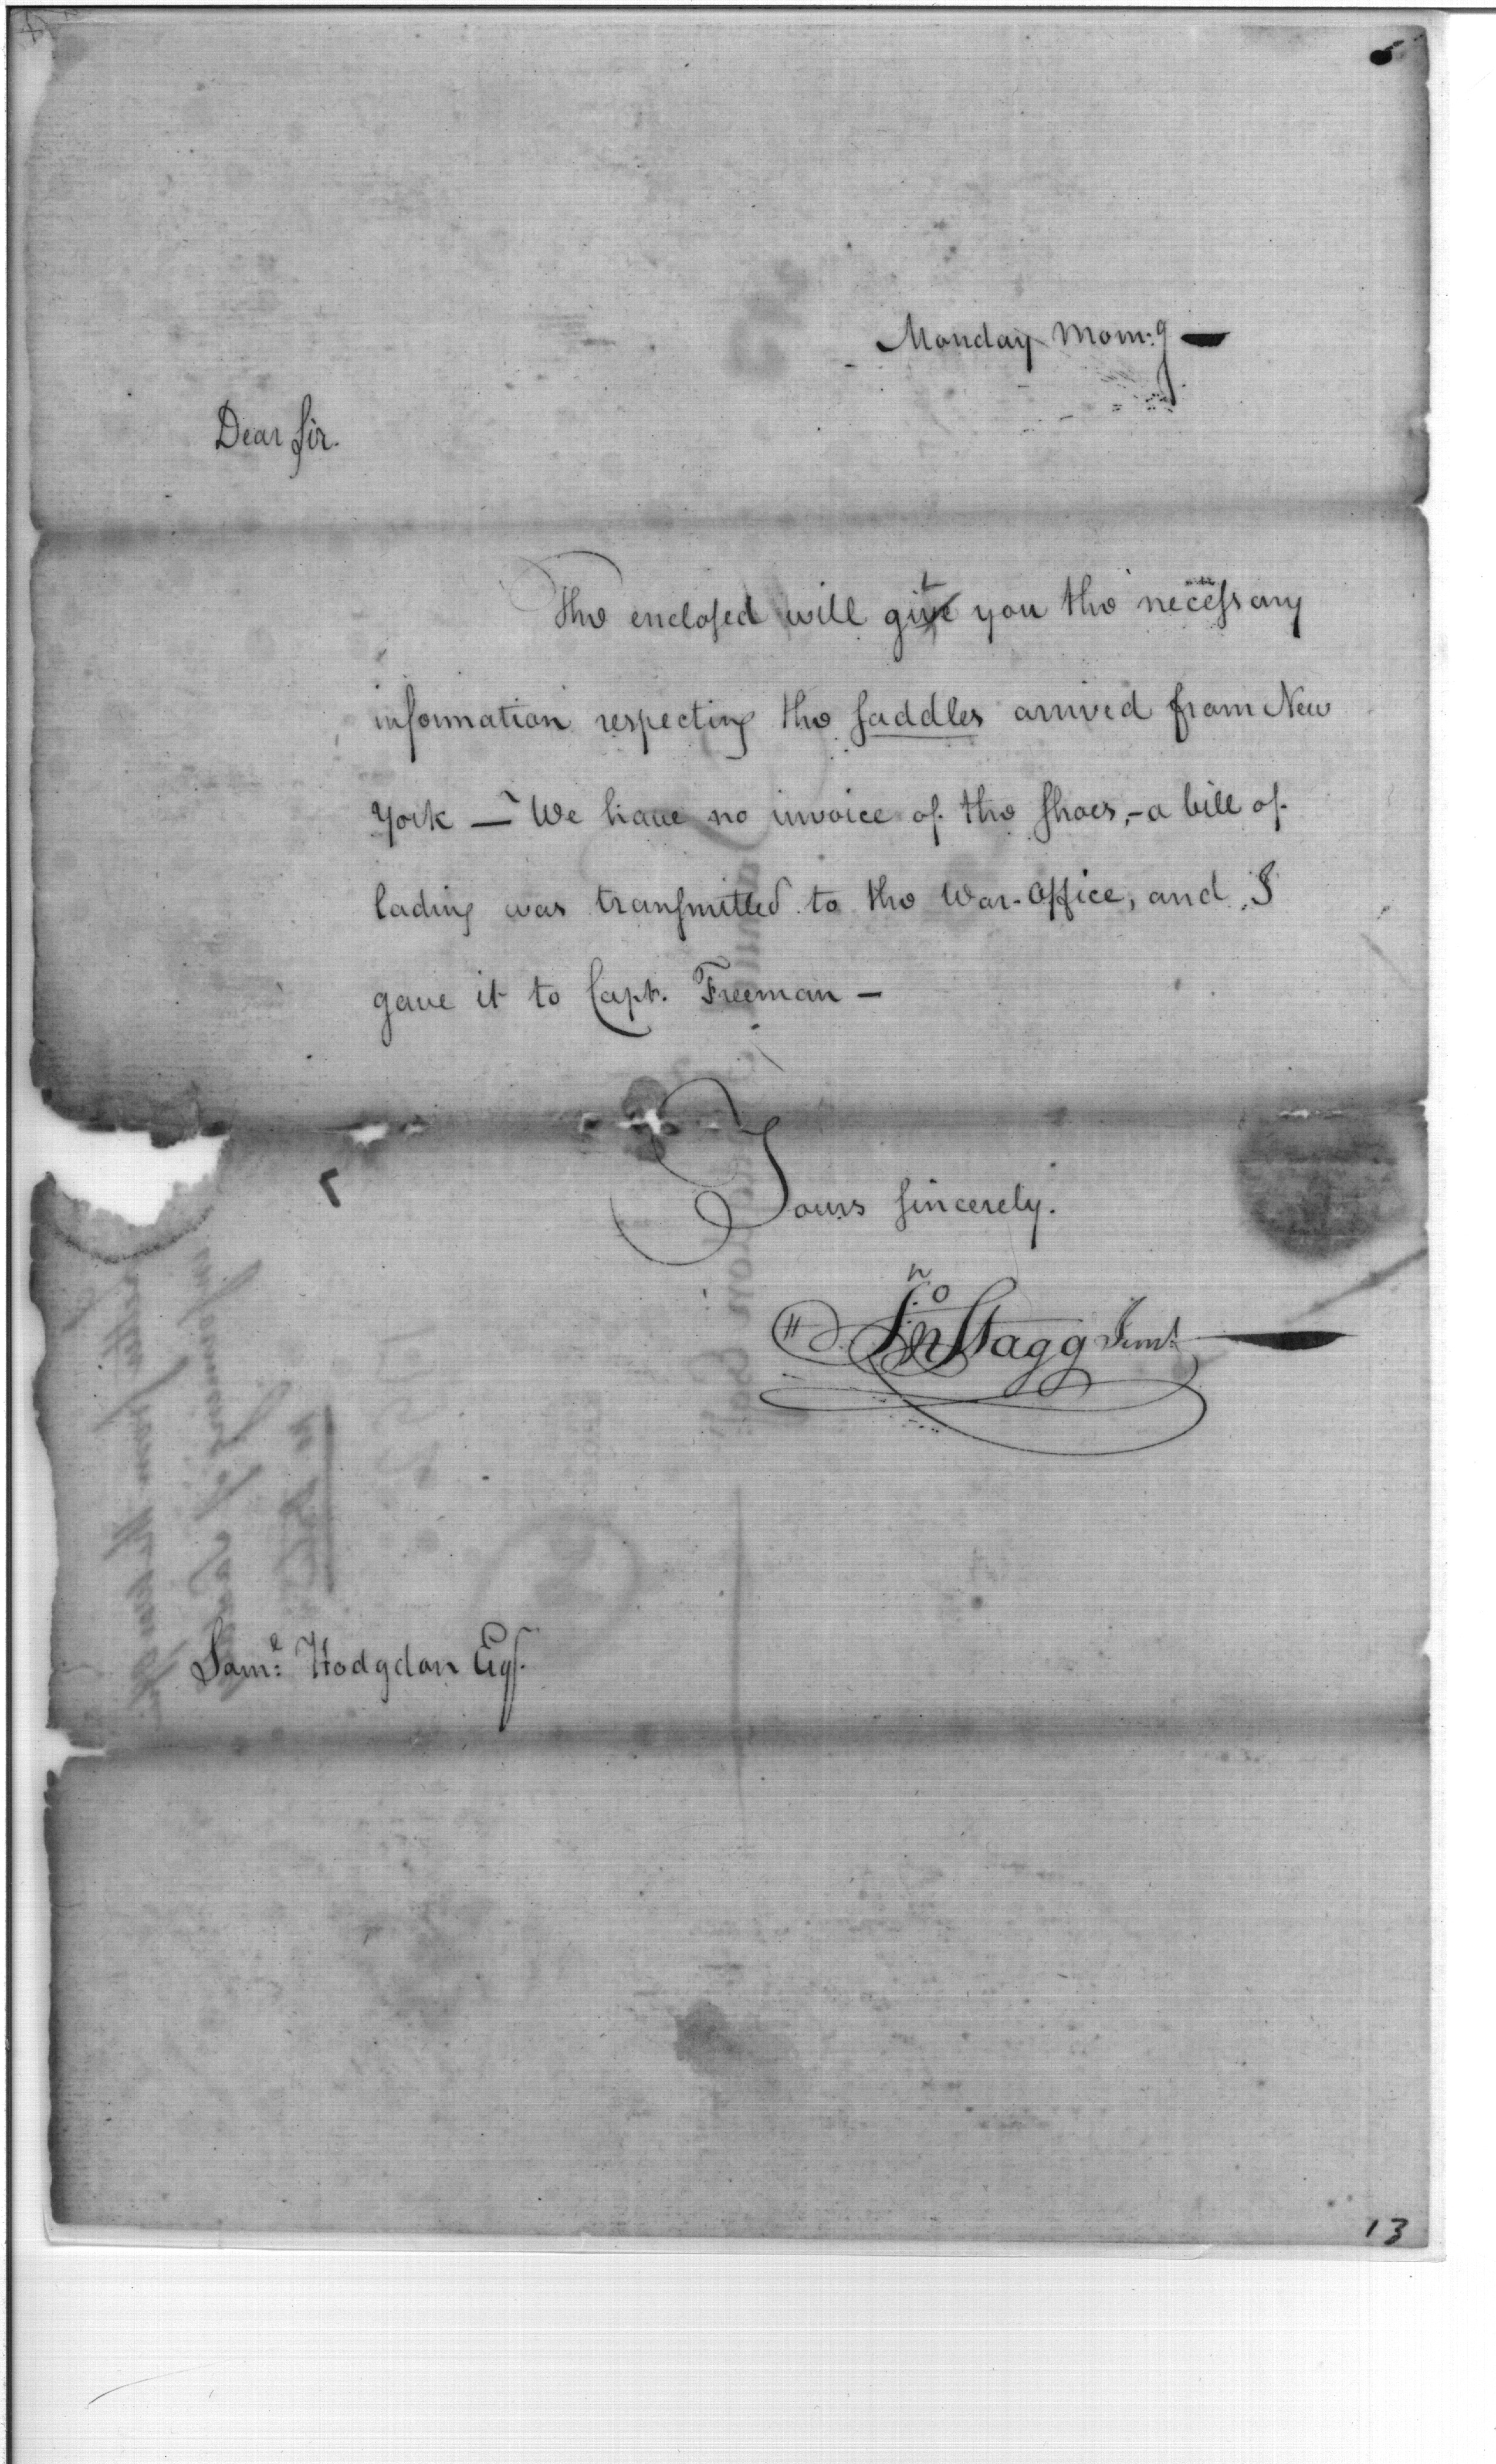 Monday Morn:g —
Dear Sir.
The enclosed will give you the necessary
information respecting the saddles arrived from New
York — We have no invoice of the shoes, - a bill of
lading was transmitted to the War-Office, and I
gave it to Capt. Freeman —
Yours sincerely.
Jno Stagg Junr.
Saml: Hodgdon Esqr.
13